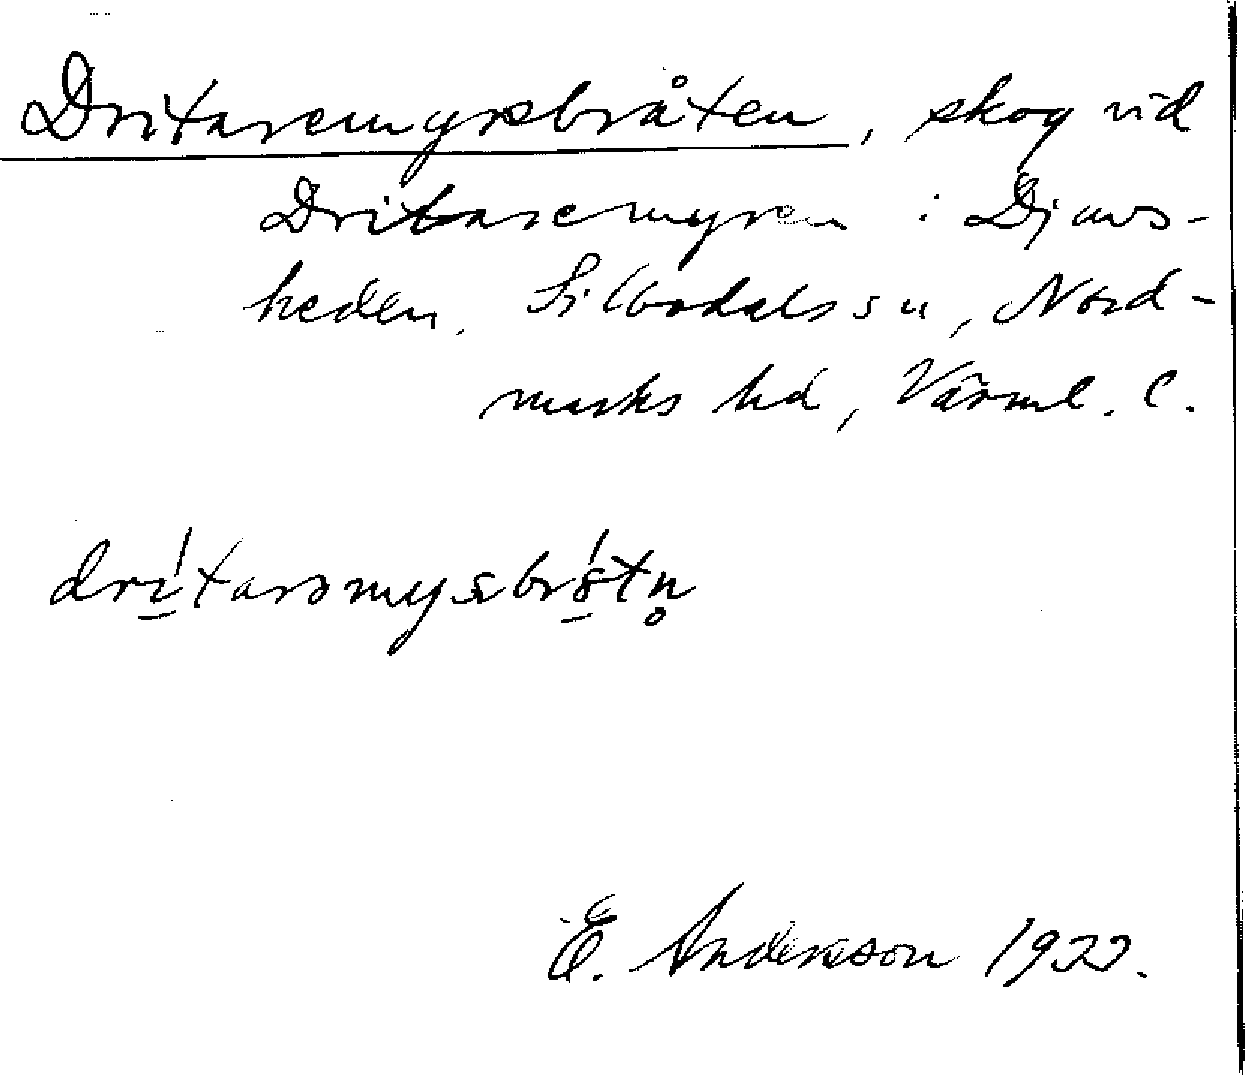 Dritaremyrsbråten, skog vid
Dritaremyren i Djavs-
heden, Silbodals sn, Nord-
marks hd, Värml. l.
drí̲tarəmysbrś̲tn̥
E. Andersson 1922.